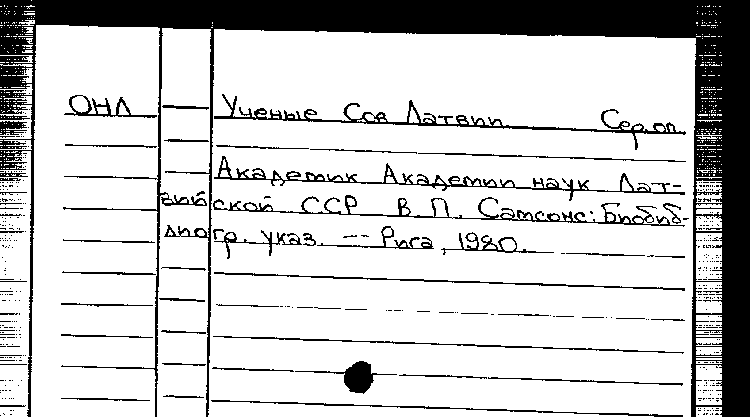 ОНЛ Ученые Сов Латвии Сер.оп.
Академик Академии наук Лат-
вийской ССР В.П. Самсонс: Биобиб-
лиогр. указ. -- Рига, 1980.